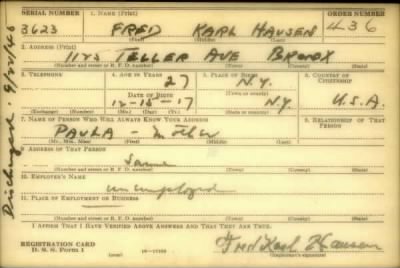 SERIAL NUMBER 1. NAME (Print) ORDER NUMBER
3623 FRED KARL HAUSEN 436
(First) (Middle) (Last)
2. ADDRESS (Print)
1125 TELLER AVE BRONX
(Number and street or R. F. D. number) (Town) (County) (State)
3. TELEPHONE 4. AGE IN YEARS 5. PLACE OF BIRTH 6. COUNTRY OF CITIZENSHIP
27 N.Y.
DATE OF BIRTH (Town or county)
12-15-17 N.Y. U.S.A.
(Exchange) (Number) (Mo.) (Day) (Yr.) (State or country)
7. NAME OF PERSON WHO WILL ALWAYS KNOW YOUR ADDRESS 8. RELATIONSHIP OF THAT PERSON
PAULA - Mother
(Mr., Mrs., Miss) (First) (Middle) (Last)
9. ADDRESS OF THAT PERSON
Same
(Number and street or R. F. D. number) (Town) (County) (State)
10. EMPLOYER'S NAME
unemployed
11. PLACE OF EMPLOYMENT OR BUSINESS
(Number and street or R. F. D. number) (Town) (County) (State)
I AFFIRM THAT I HAVE VERIFIED ABOVE ANSWERS AND THAT THEY ARE TRUE.
REGISTRATION CARD
D. S. S. Form 1 (over) Fred Karl Hausen
(Registrant's signature)
Discharged: